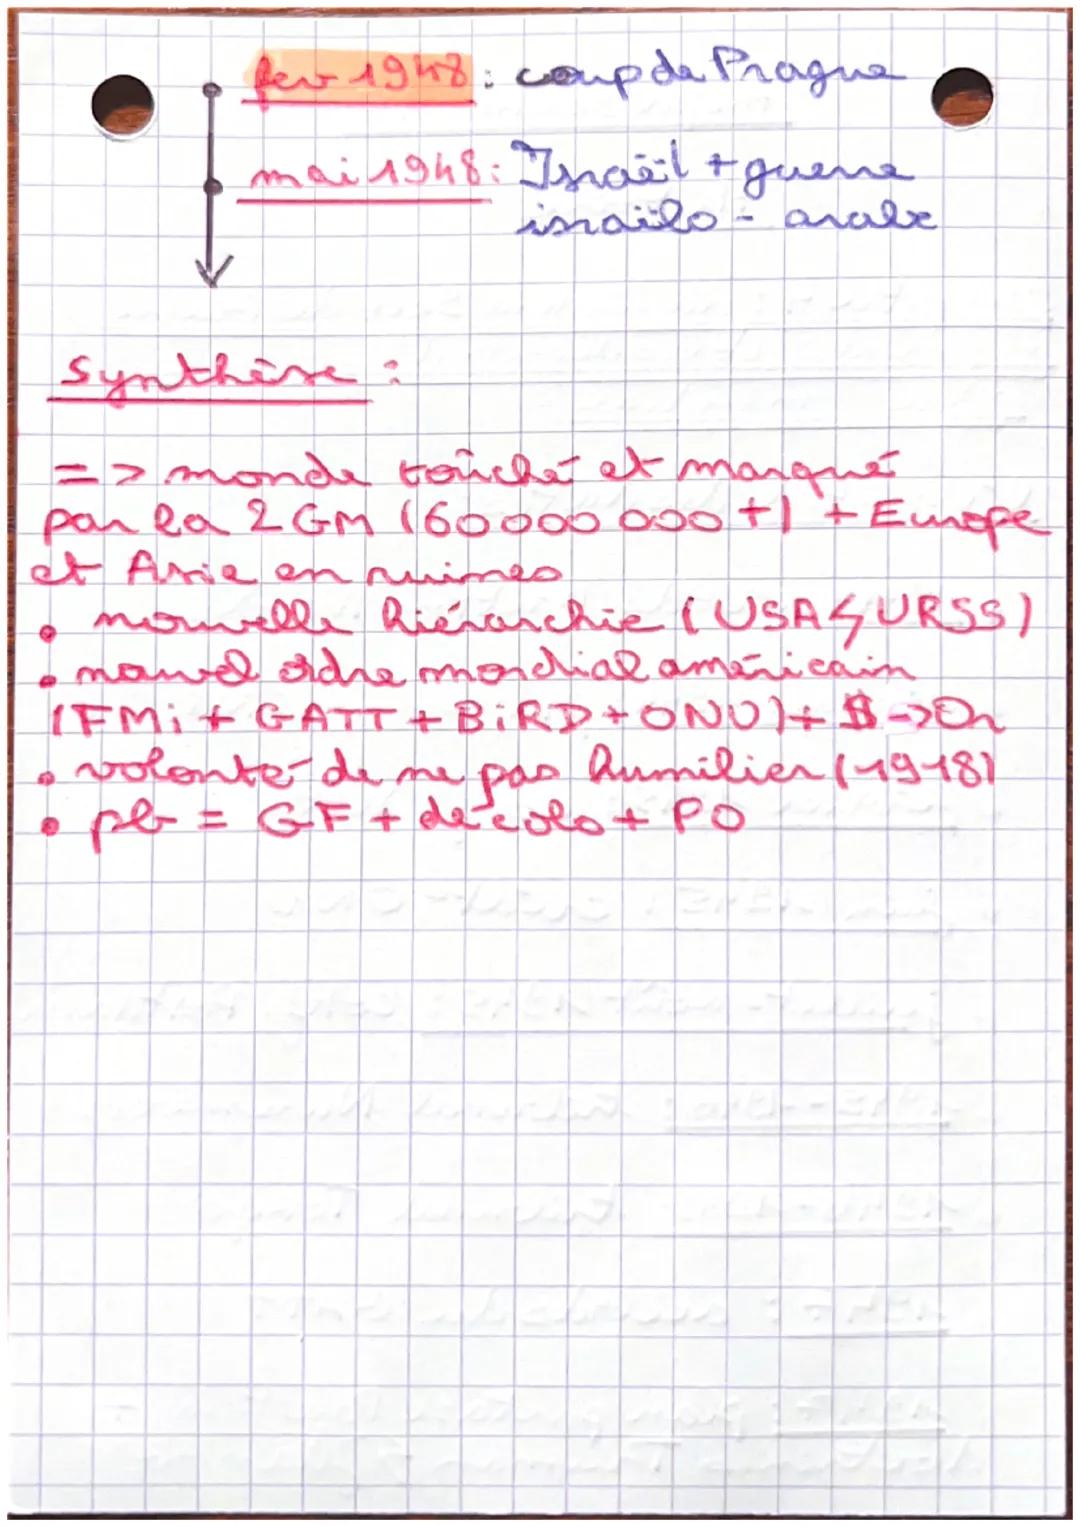 fev 1948 : coup de Prague
mai 1948 : Israël + guerre
israëlo - arabe
Synthèse :
=> monde touché et marqué
par la 2GM (60 000 000 +) + Europe
et Asie en ruines
• nouvelle hiérarchie (USA ϟ URSS)
• nouvel ordre mondial américain
(FMi + GATT + BiRD + ONU) + $ -> Or
• volonté de ne pas humilier (1918)
• pb = GF + décolo + PO